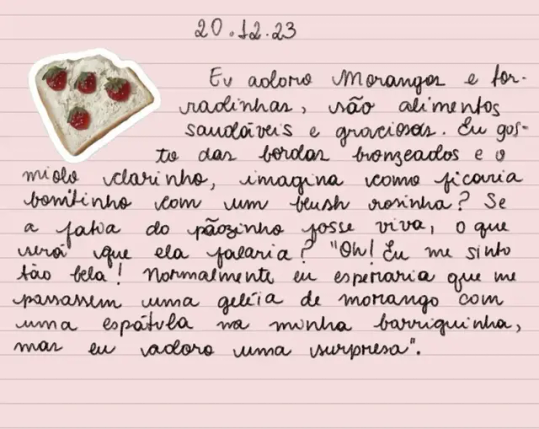 20.12.23
Eu adoro Morangos e tor-
radinhas, são alimentos
saudáveis e graciosos. Eu gos-
to das bordas bronzeados e o
miolo clarinho, imagina como ficaria
bonitinho com um blush rosinha? Se
a fatia do pãozinho fosse viva, o que
será que ela falaria? "Oh! Eu me sinto
tão bela! Normalmente eu esperaria que me
passassem uma geléia de morango com
uma espátula na minha barriguinha,
mas eu adoro uma surpresa".